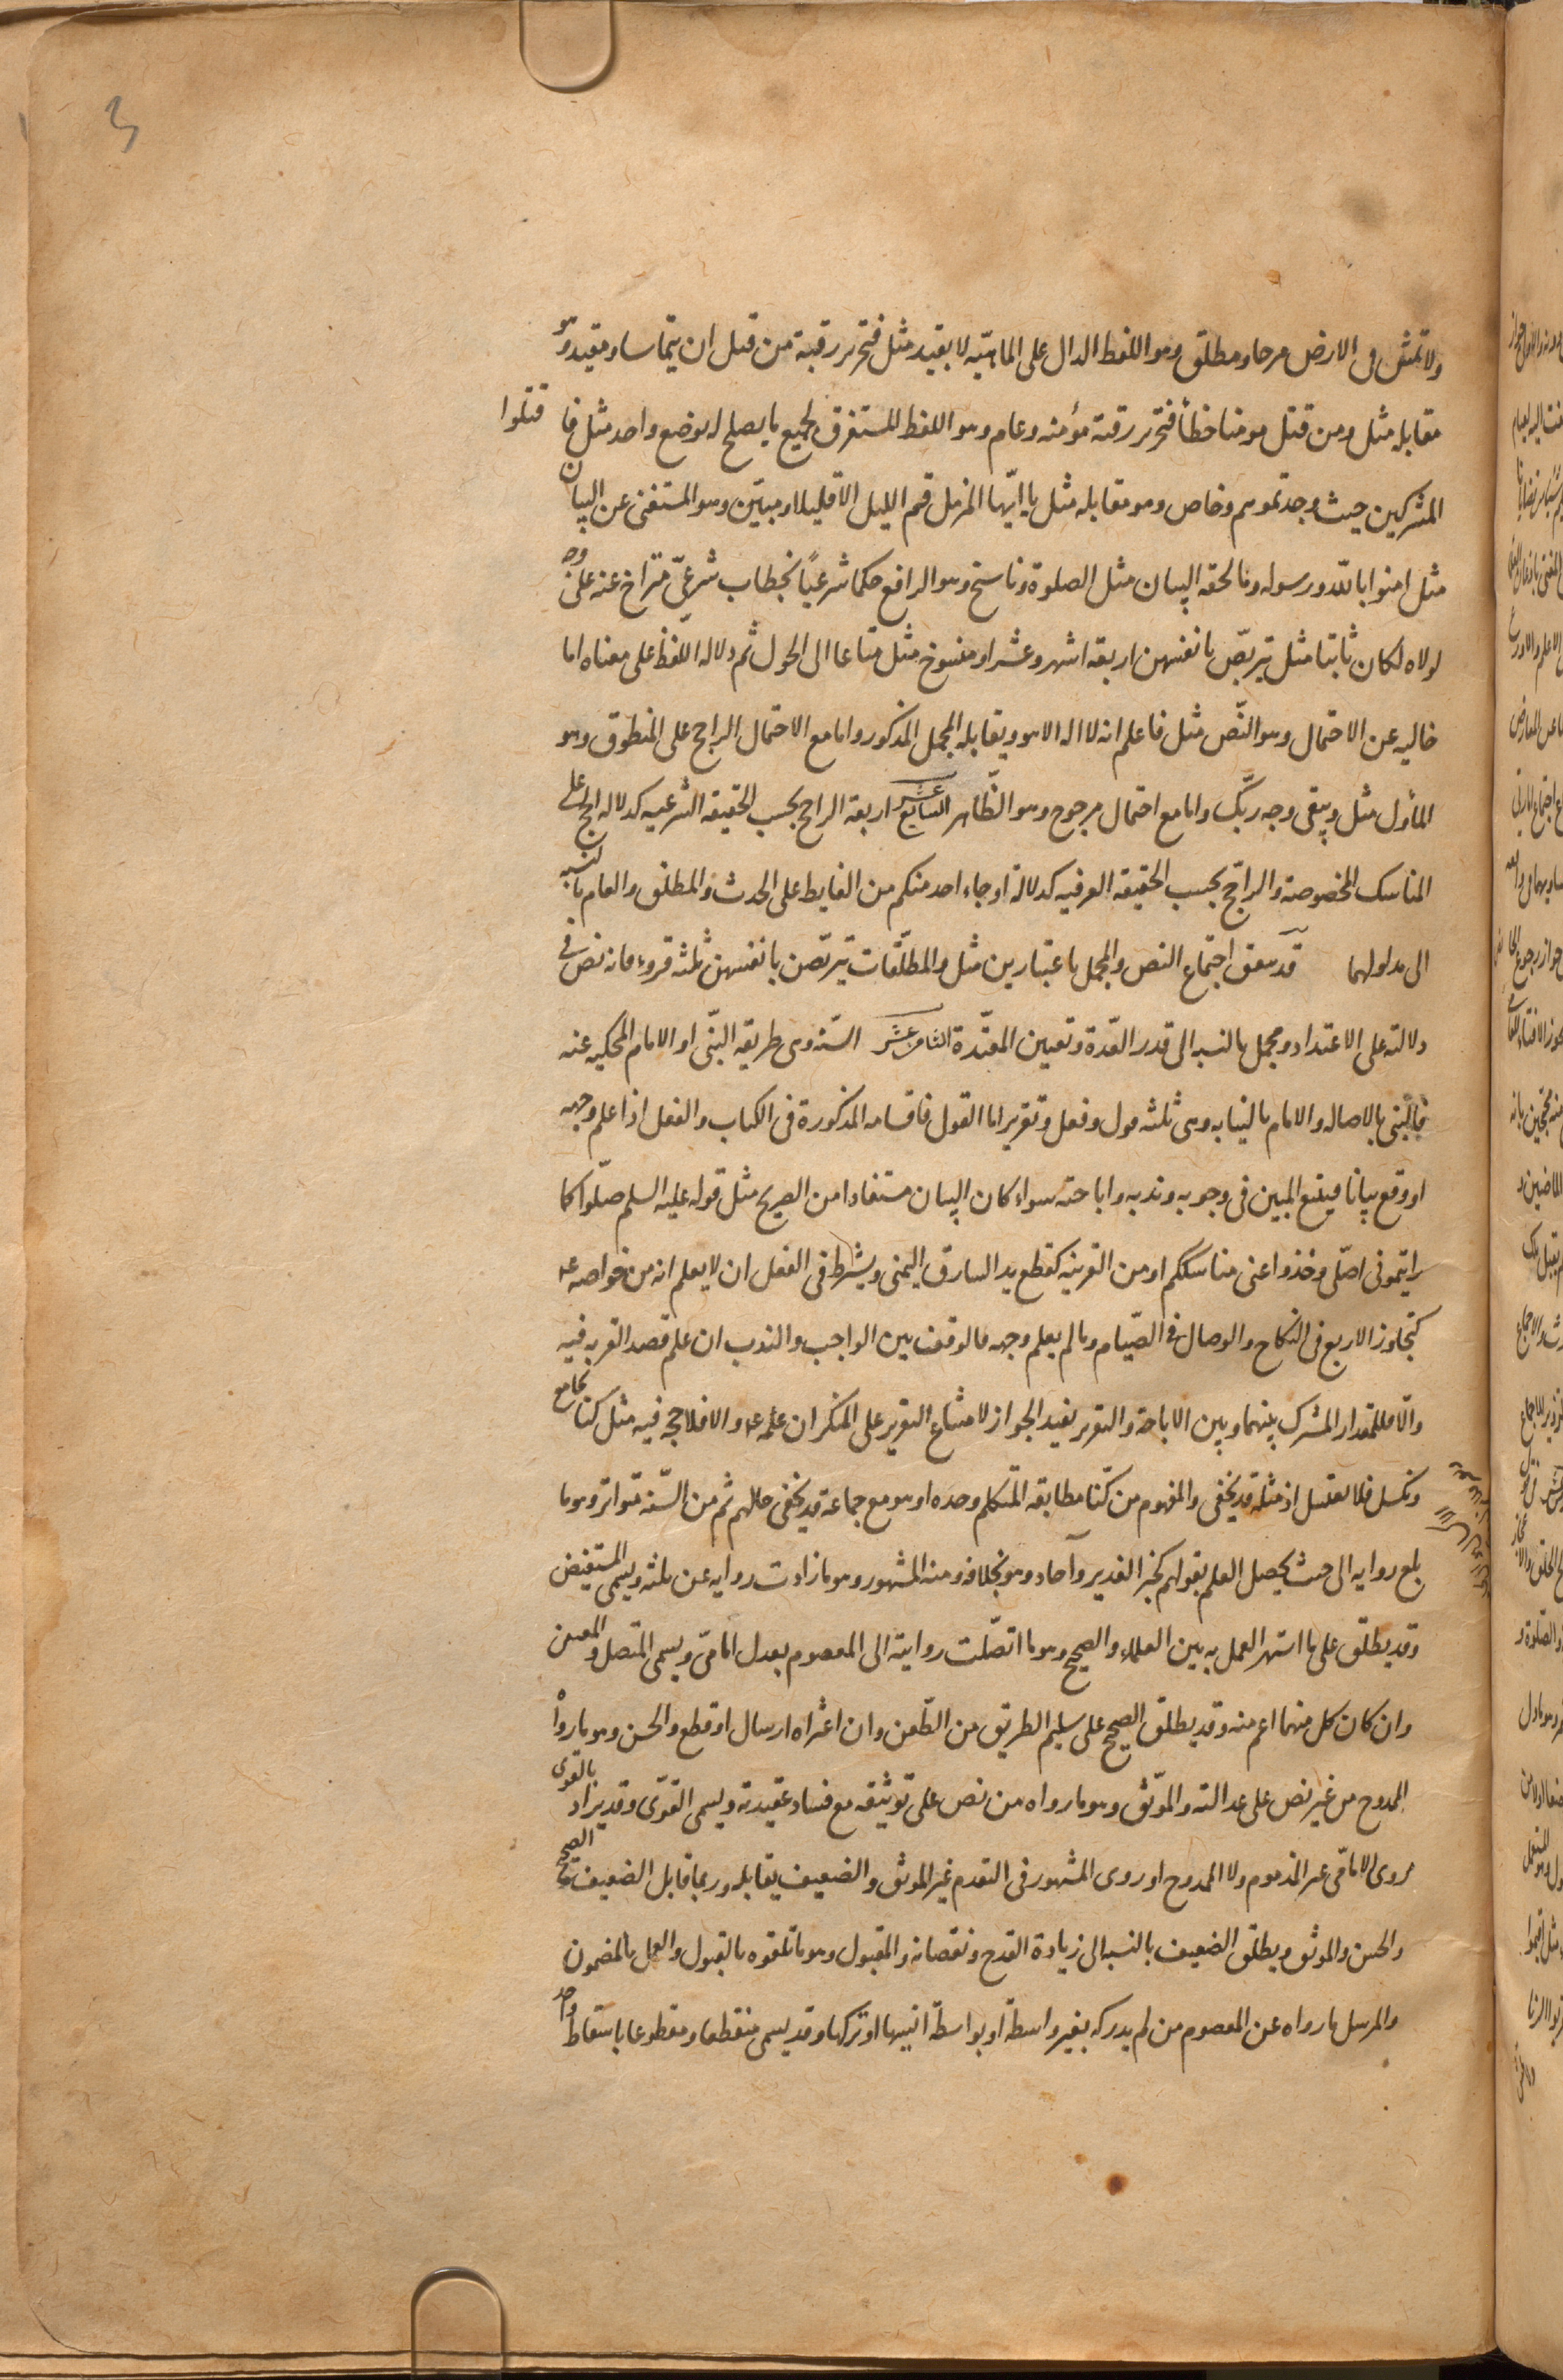 ولا تمش فى الارض مرحا ومطلق وهو اللفظ الدال على الماهيّه لا بقيد مثل فتحرير رقبة من قبل ان يتماسا ومقيد وهو
مقابله مثل ومن قتل مومنا خطأ فتحرير رقبة مؤمنه وعام وهو اللفظ المستغرق لجميع ما يصلح له بوضع واحد مثل فا قتلوا
المشركين حيث وجدتموهم وخاص وهو مقابله مثل يا ايّها المزمل قم الليل الا قليلا ومبيّن وهو المستغنى عن البيان
مثل امنوا بالله ورسوله وما لحقه البيان مثل الصلوة وناسخ وهو الرافع حكما شرعيًا بخطاب شرعىّ متراخ عنه على وجه
لولاه لكان ثابتا مثل يتربّصن بانفسهن اربعة اشهر وعشرا ومنسوخ مثل متاعا الى الحول ثم دلاله اللفظ على معناه اما
خاليه عن الاحتمال وهو النّص مثل فاعلم انه لا اله الا هو ويقابله المجمل المذكور واما مع الاحتمال الراجح على المنطوق وهو
المأول مثل ويبقى وجه ربّك واما مع احتمال مرجوح وهو الظّاهر السابع عشر اربعة الراجح بحسب الحقيقه الشرعيه كدلاله الحج على
المناسك المخصوصة والراجح بحسب الحقيقه العرفيه كدلالة او جاء احد منكم من الغايط على الحدث والمطلق والعام بالنسبه
الى مدلولهما قد يتفق اجتماع النص والمجمل باعتبارين مثل والمطلّقات يتربّصن بانفسهن ثلثه قروء فانه نص فى
دلالته على الاعتداد ومجمل بالنسبه الى قدر العّدة وتعيين المعتدّة الثامن عشر السّنه وهى طريقه النبّى او الامام المحكيه عنه
فالنبّى بالاصاله والامام بالنيابه وهى ثلثه قول وفعل وتقرير اما القول فاقسامه المذكورة فى الكتاب والفعل اذا علم وجهه
او وقع بيانا فيتبع المبين فى وجوبه وندبه واباحته سواء كان البيان مستفادا من الصريح مثل قوله عليه السلم صلّوا كما
رايتمونى اصلّى وخذوا عنى مناسككم او من القرينه كقطع يد السارق اليمنى ويشرط فى الفعل ان لا يعلم انه من خواصه ع
كتجاوز الاربع فى النكاح والوصال فى الصّيام وما لم يعلم وجهه فالوقف بين الواجب والندب ان علم قصد القربه فيه
والّا فللقدار المشرك بينهما وبين الاباحة والتقرير يفيد الجواز لامتناع التقرير على المنكر ان علمه ع والا فلا حجه فيه مثل كنا نجامع
ونكسل فلا نغتسل اذ مثله قد يخفى والمفهوم من كنّا مطابقه المتكلم وحده او هو مع جماعة قد يخفى حالهم ثم من السّنه متواتر وهو ما
بلغ روايه الى حيث يحصل العلم بقولهم كخبر الغدير وآحاد وهو بخلافه ومنه المشهور وهو ما زادت روايه عن ثلثه ويسمى المستفيض
وقد يطلّق على ما اشتهر العمل به بين العلماء والصحيح وهو ما اتصّلت روايته الى المعصوم بعدل امامىّ ويسمى المتصل والمعنعن
وان كان كل منهما اعم منه وقد يطلق الصحيح على سليم الطريق من الطّعن وان اعتراه ارسال او قطع والحسن وهو ما رواه
الممدوح من غير نص على عدالته والموّثق وهو ما رواه من نص على توثيقه مع فساد عقيدته ويسمى القوّى وقد يراد بالقوى
مروى الامامّى غير المذموم ولا الممدوح او روى المشهور فى التقدم غير الموثق والضعيف يقابله وربما قابل الضعيف الصحيح
والحسن والموثق ويطلق الضعيف بالنسبه الى زيادة القدح ونقصانه والمقبول وهو ما تلقوه بالقبول والعمل بالمضمون
والمرسل ما رواه عن المعصوم من لم يدركه بغير واسطة او بواسطة انسيها او تركها وقد يسمى منقطعا ومقطوعا باسقاط واحد